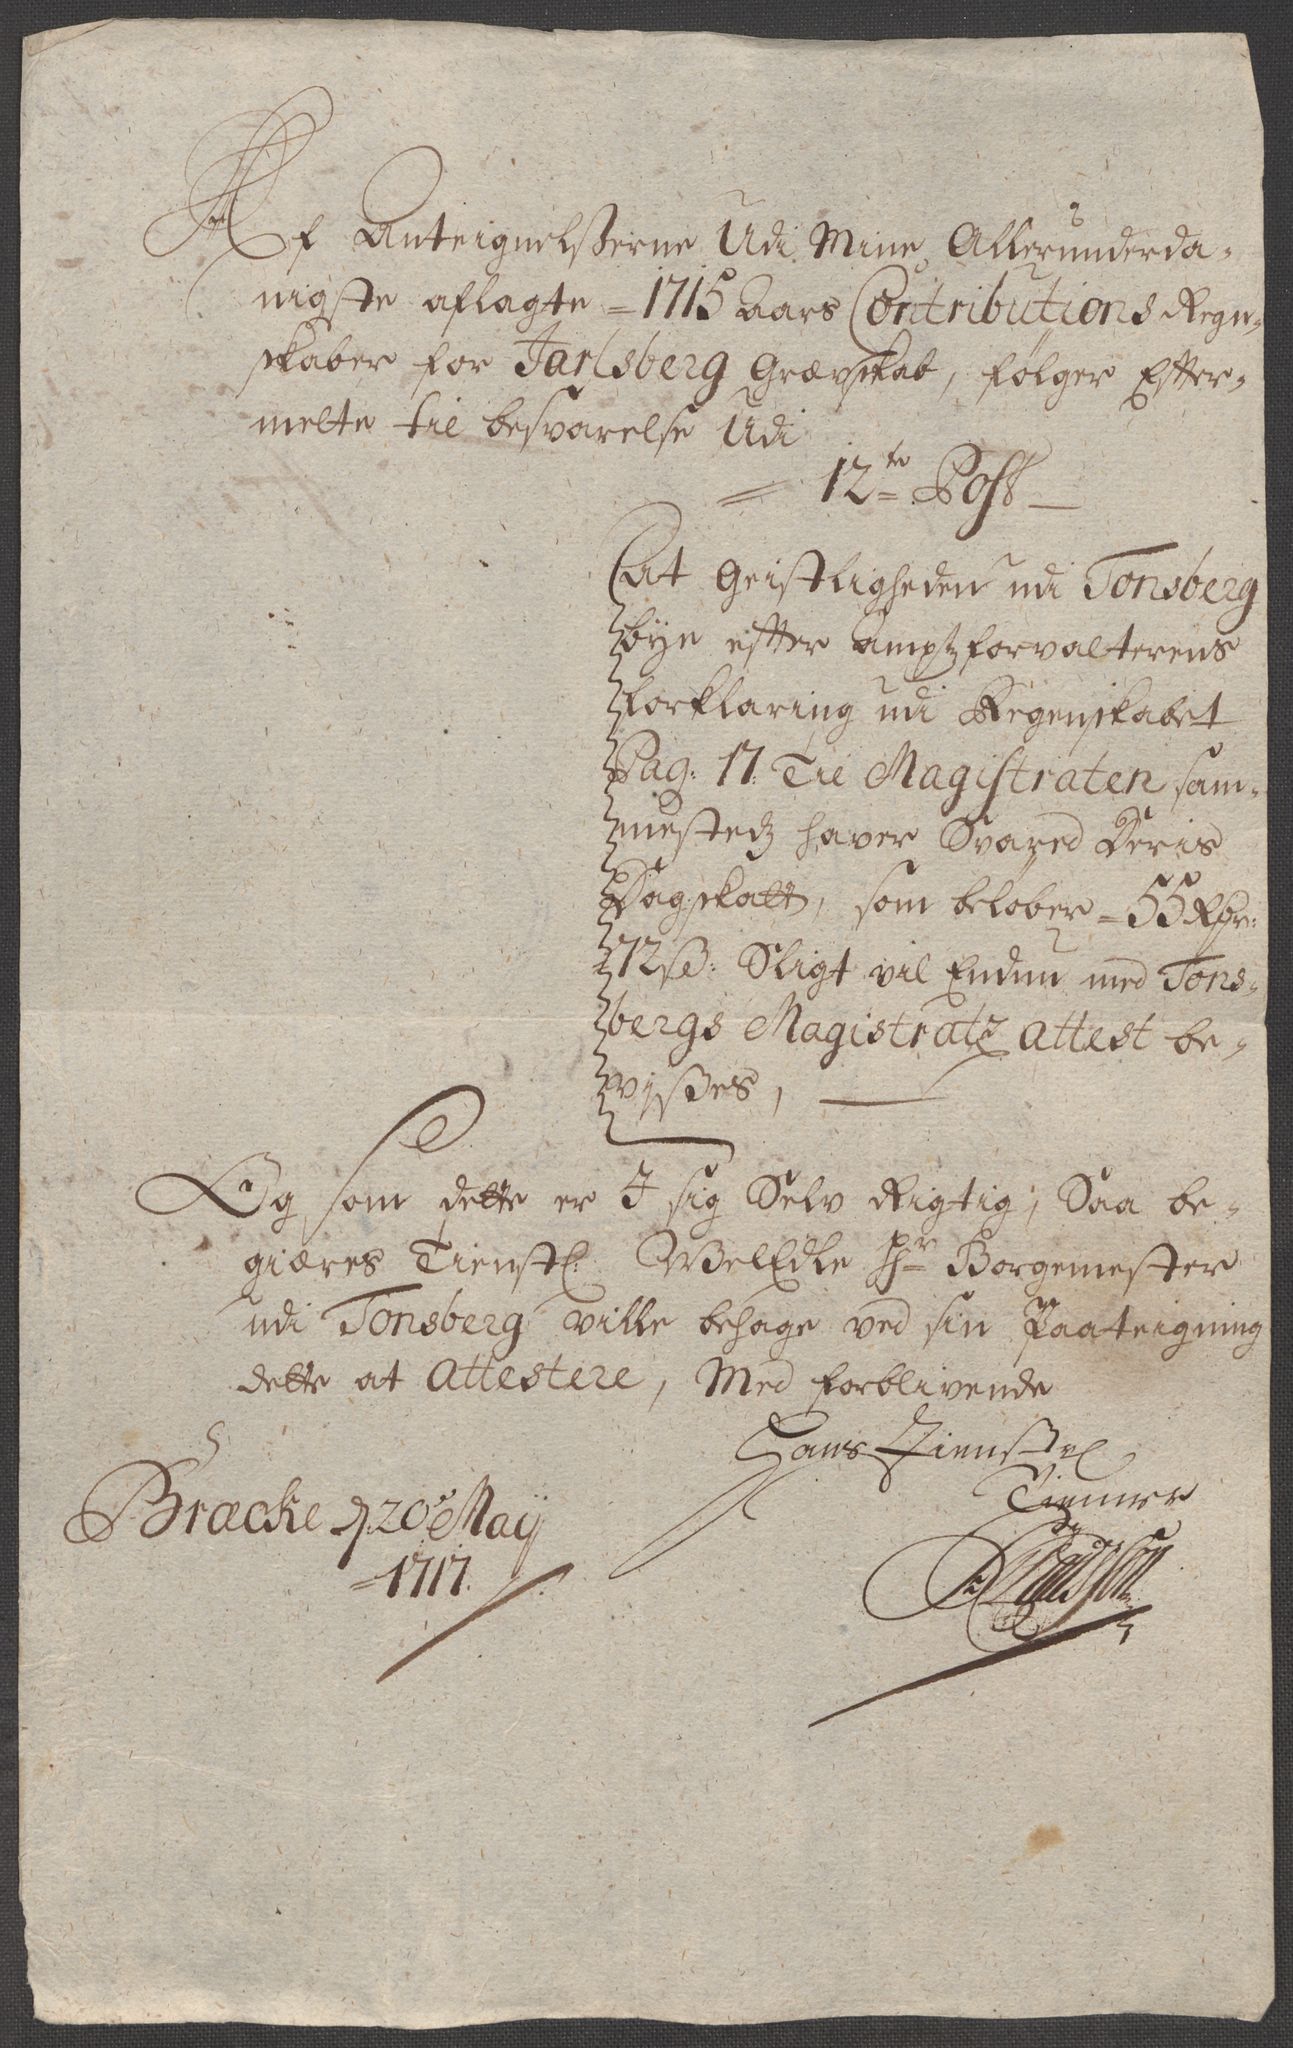 Af Anteignelsserne Udi Mine Allerunderda-
nigste aflagte = 1715 Aars Contributions Regn-
skaber for Jarlsberg Grævskab, følger Effter-
melte til besvarelse Udi
= 12te Post
At Geistligheden udi Tonsberg
bye effter Amptzforvalterens
forklaring udi Regenskabet
Pag: 17. Til Magistraten sam-
mestedz haver Svared Deris
Dagskatt, som beløber = 55 Rdr:
72 ß: Sligt vil Endnu med Tons-
bergs Magistratz Attest be-
visses,
Og som dette er I sig Selv Rigtig, Saa be-
giæres Tienstl: WelEdle Hr Borgemester
udi Tonsberg ville behage ved sin Paateigning
dette at Attestere, Med forblivende
Hans Tienstl
Tienner
Bracke d. 20 May
= 1717.